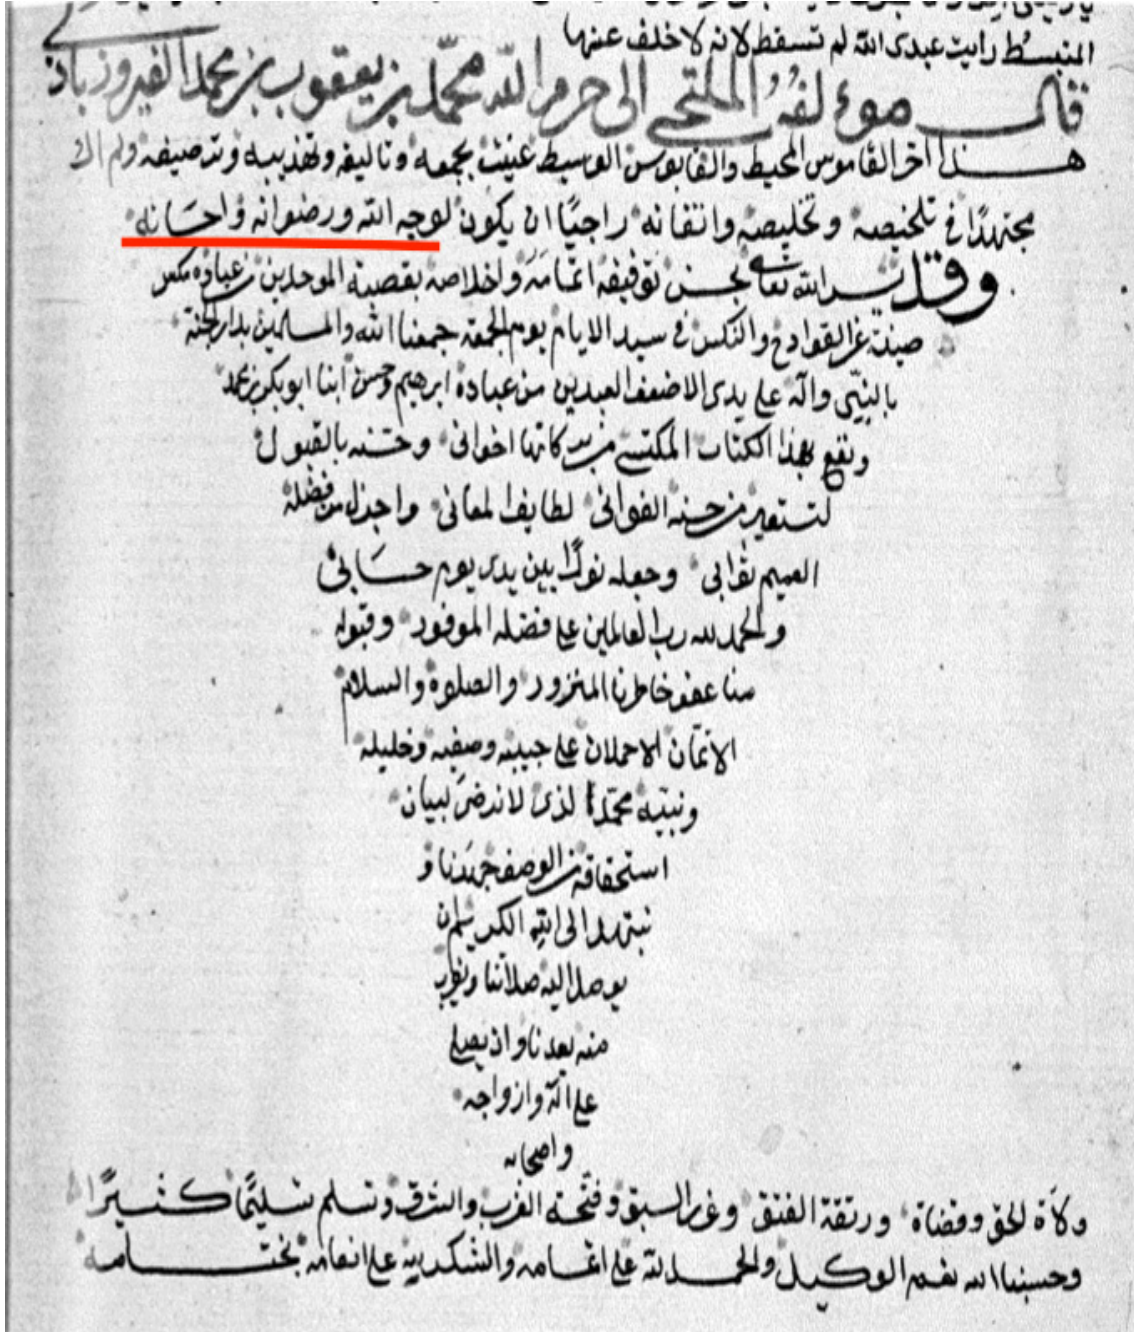 المنبسط رايت عبدى الله لم تسقط لانه لا خلف عنها
قال مؤلفه الملتجى الى حرم الله محمد بن يعقوب بن محمد الفيروزاباذى
هذا اخر القاموس المحيط والقابوس الوسيط عنيت بجمعه وتاليفه وتهذيبه وترصيفه ولم ال
مجتهدًا فى تلخيصه وتخليصه واتقانه راجيًا ان يكون لوجه الله ورضوانه واحسانه
وقد يسر الله تعالى بحسن توفيقه اتمامه
فى سيد الايام يوم الجمعة جمعنا الله والمسلمين بدار الجنة
بالنبى وآله على يدى الاضعف العبدين من عباده ابرهيم وحسن ابنا ابوبكر بن محمد
ونفع بهذا الكتاب المكتسى من بركاتها اخوانى وحسنه بالقبول
من حسنه الغوانى لطايف المعانى واجزل من فضله
العميم ثوابى وجعله نورًا بين يدى يوم حسابى
والحمد لله رب العالمين على فضله الموفور وقبوله
منا عفو خاطرنا المنزور والصلوة والسلام
الاتمان الاكملان على حبيبه وصفيه وخليله
ونبيه محمد الذى لا نرضى لبيان
استحقاقه من الوصف جهدنا و
نبتهل الى الله الكريم ان
يوصل اليه صلاتنا ويقرب
منه بعدنا وان يصلى
على اله وازواجه
واصحابه
ولاة الحق وقضاة ورتقة الفتق وغرر السبق وفتحة الغرب والشرق وتسلم تسليمًا كثيرًا
وحسبنا الله نعم الوكيل والحمد لله على اتمامه والشكر لله على انعامه بختامه